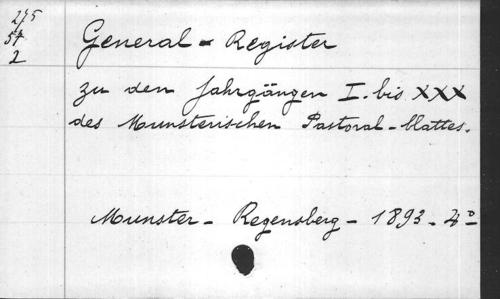 275
57
2
General - Register
zu den Jahrgängen I. bis XXX
des Munsterischen Pastoral-blattes.
Munster - Regensberg - 1893 - 4°